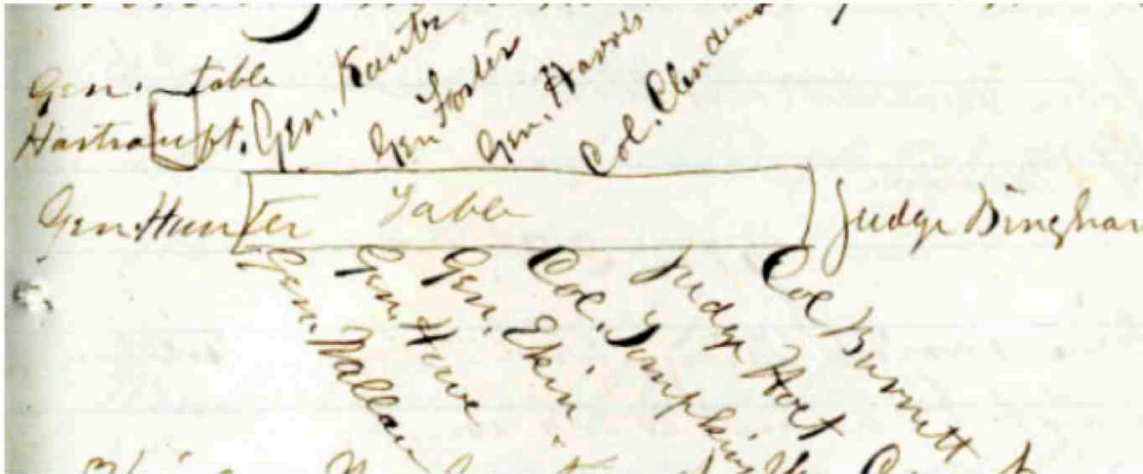 Gen. table
Hartranft.
Gen. Kautz
Gen Foster
Gen. Harris
Col. Clendenin
Gen. Hunter
Table
Judge Bingham
Gen. Wallace
Gen. Howe
Gen. Ekin
Col. Tompkins
Judge Holt
Col Burnett